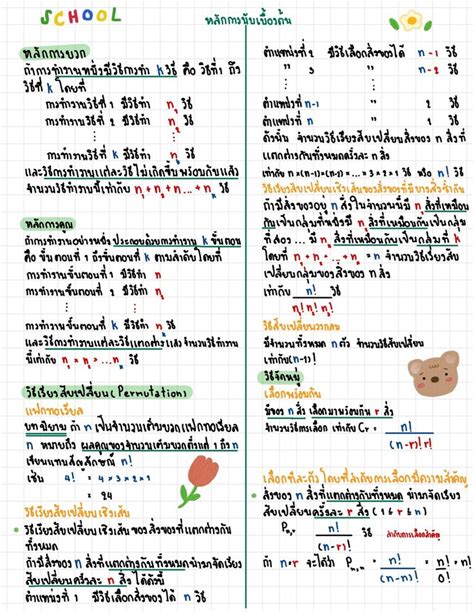 SCHOOL
หลักการนับเบื้องต้น
หลักการบวก
ถ้าการทำงานหนึ่งมีวิธีการทำ k วิธี คือ วิธีที่ 1 ถึง
วิธีที่ k โดยที่
การทำงานวิธีที่ 1 มีวิธีทำ n₁ วิธี
การทำงานวิธีที่ 2 มีวิธีทำ n₂ วิธี
⋮ ⋮
การทำงานวิธีที่ k มีวิธีทำ nₖ วิธี
และวิธีการทำงานแต่ละวิธี ไม่เกิดขึ้นพร้อมกันแล้ว
จำนวนวิธีทำงานนี้เท่ากับ n₁ + n₂ + n₃ ... + nₖ วิธี
หลักการคูณ
ถ้าการทำงานอย่างหนึ่ง ประกอบด้วยการทำงาน k ขั้นตอน
คือ ขั้นตอนที่ 1 ถึงขั้นตอนที่ k ตามลำดับโดยที่
การทำงานขั้นตอนที่ 1 มีวิธีทำ n₁
การทำงานขั้นตอนที่ 2 มีวิธีทำ n₂ วิธี
⋮ ⋮
การทำงานขั้นตอนที่ k มีวิธีทำ nₖ วิธี
และวิธีการทำงานแต่ละวิธีแตกต่างกันแล้ว จำนวนวิธีทำงาน
นี้เท่ากับ n₁ × n₂ × ... nₖ วิธี
วิธีเรียงสับเปลี่ยน (Permutation)
แฟกทอเรียล
บทนิยาม ถ้า n เป็นจำนวนเต็มบวกแฟกทอเรียล
n หมายถึง ผลคูณของจำนวนเต็มบวกตั้งแต่ 1 ถึง n
เขียนแทนสัญลักษณ์ n!
เช่น 4! = 4 × 3 × 2 × 1
= 24
วิธีเรียงสับเปลี่ยนเชิงเส้น
• วิธีเรียงสับเปลี่ยนเชิงเส้นของสิ่งของที่แตกต่างกัน
ทั้งหมด
ถ้ามีสิ่งของ n สิ่งที่แตกต่างกันทั้งหมดนำมาจัดเรียง
สับเปลี่ยนครั้งละ n สิ่งได้ดังนี้
ตำแหน่งที่ 1 มีวิธีเลือกสิ่งของได้ n วิธี
ตำแหน่งที่ 2 มีวิธีเลือกสิ่งของได้ n-1 วิธี
" 3 " n-2 วิธี
⋮ ⋮
ตำแหน่งที่ n-1 " 2 วิธี
ตำแหน่งที่ n " 1 วิธี
ดังนั้น จำนวนวิธีเรียงสับเปลี่ยนของ n สิ่งที่
แตกต่างกันทั้งหมดครั้งละ n สิ่ง
เท่ากับ n×(n-1)×(n-2)×...×3×2×1 วิธี หรือ n! วิธี
วิธีเรียงสับเปลี่ยนเชิงเส้นของสิ่งของที่มีของซ้ำกัน
ถ้ามีสิ่งของอยู่ n สิ่งในจำนวนนี้มี n₁ สิ่งที่เหมือน
กันเป็นกลุ่มที่หนึ่งมี n₂ สิ่งที่เหมือนกันเป็นกลุ่ม
ที่สอง ... มี nₖ สิ่งที่เหมือนกันเป็นกลุ่มที่ k
โดยที่ n₁ + n₂ + ... + nₖ = n จำนวนวิธีเรียงสับ
เปลี่ยนกลุ่มของสิ่งของ n สิ่ง
เท่ากับ n! / n₁! n₂! nₖ! วิธี
วิธีสับเปลี่ยนวงกลม
มีจำนวนทั้งหมด n ตัว จำนวนวิธีสับเปลี่ยน
เท่ากับ (n-1)!
วิธีจัดหมู่
เลือกพร้อมกัน
มีของ n สิ่ง เลือกมาพร้อมกัน r สิ่ง
จำนวนวิธีการเลือก เท่ากับ Cr = n! / (n-r)! r!
เลือกทีละตัว โดยที่ลำดับการเลือกมีความสำคัญ
• สิ่งของ n สิ่งที่แตกต่างกันทั้งหมด นำมาจัดเรียง
สับเปลี่ยนครั้งละ r สิ่ง (1 ≤ r ≤ n)
Pₙ,ᵣ = n! / (n-r)! วิธี ลำดับการเลือกสำคัญ
ถ้า n = r จะได้ว่า Pₙ,ₙ = n! / (n-n)! = n! / 0! = n!